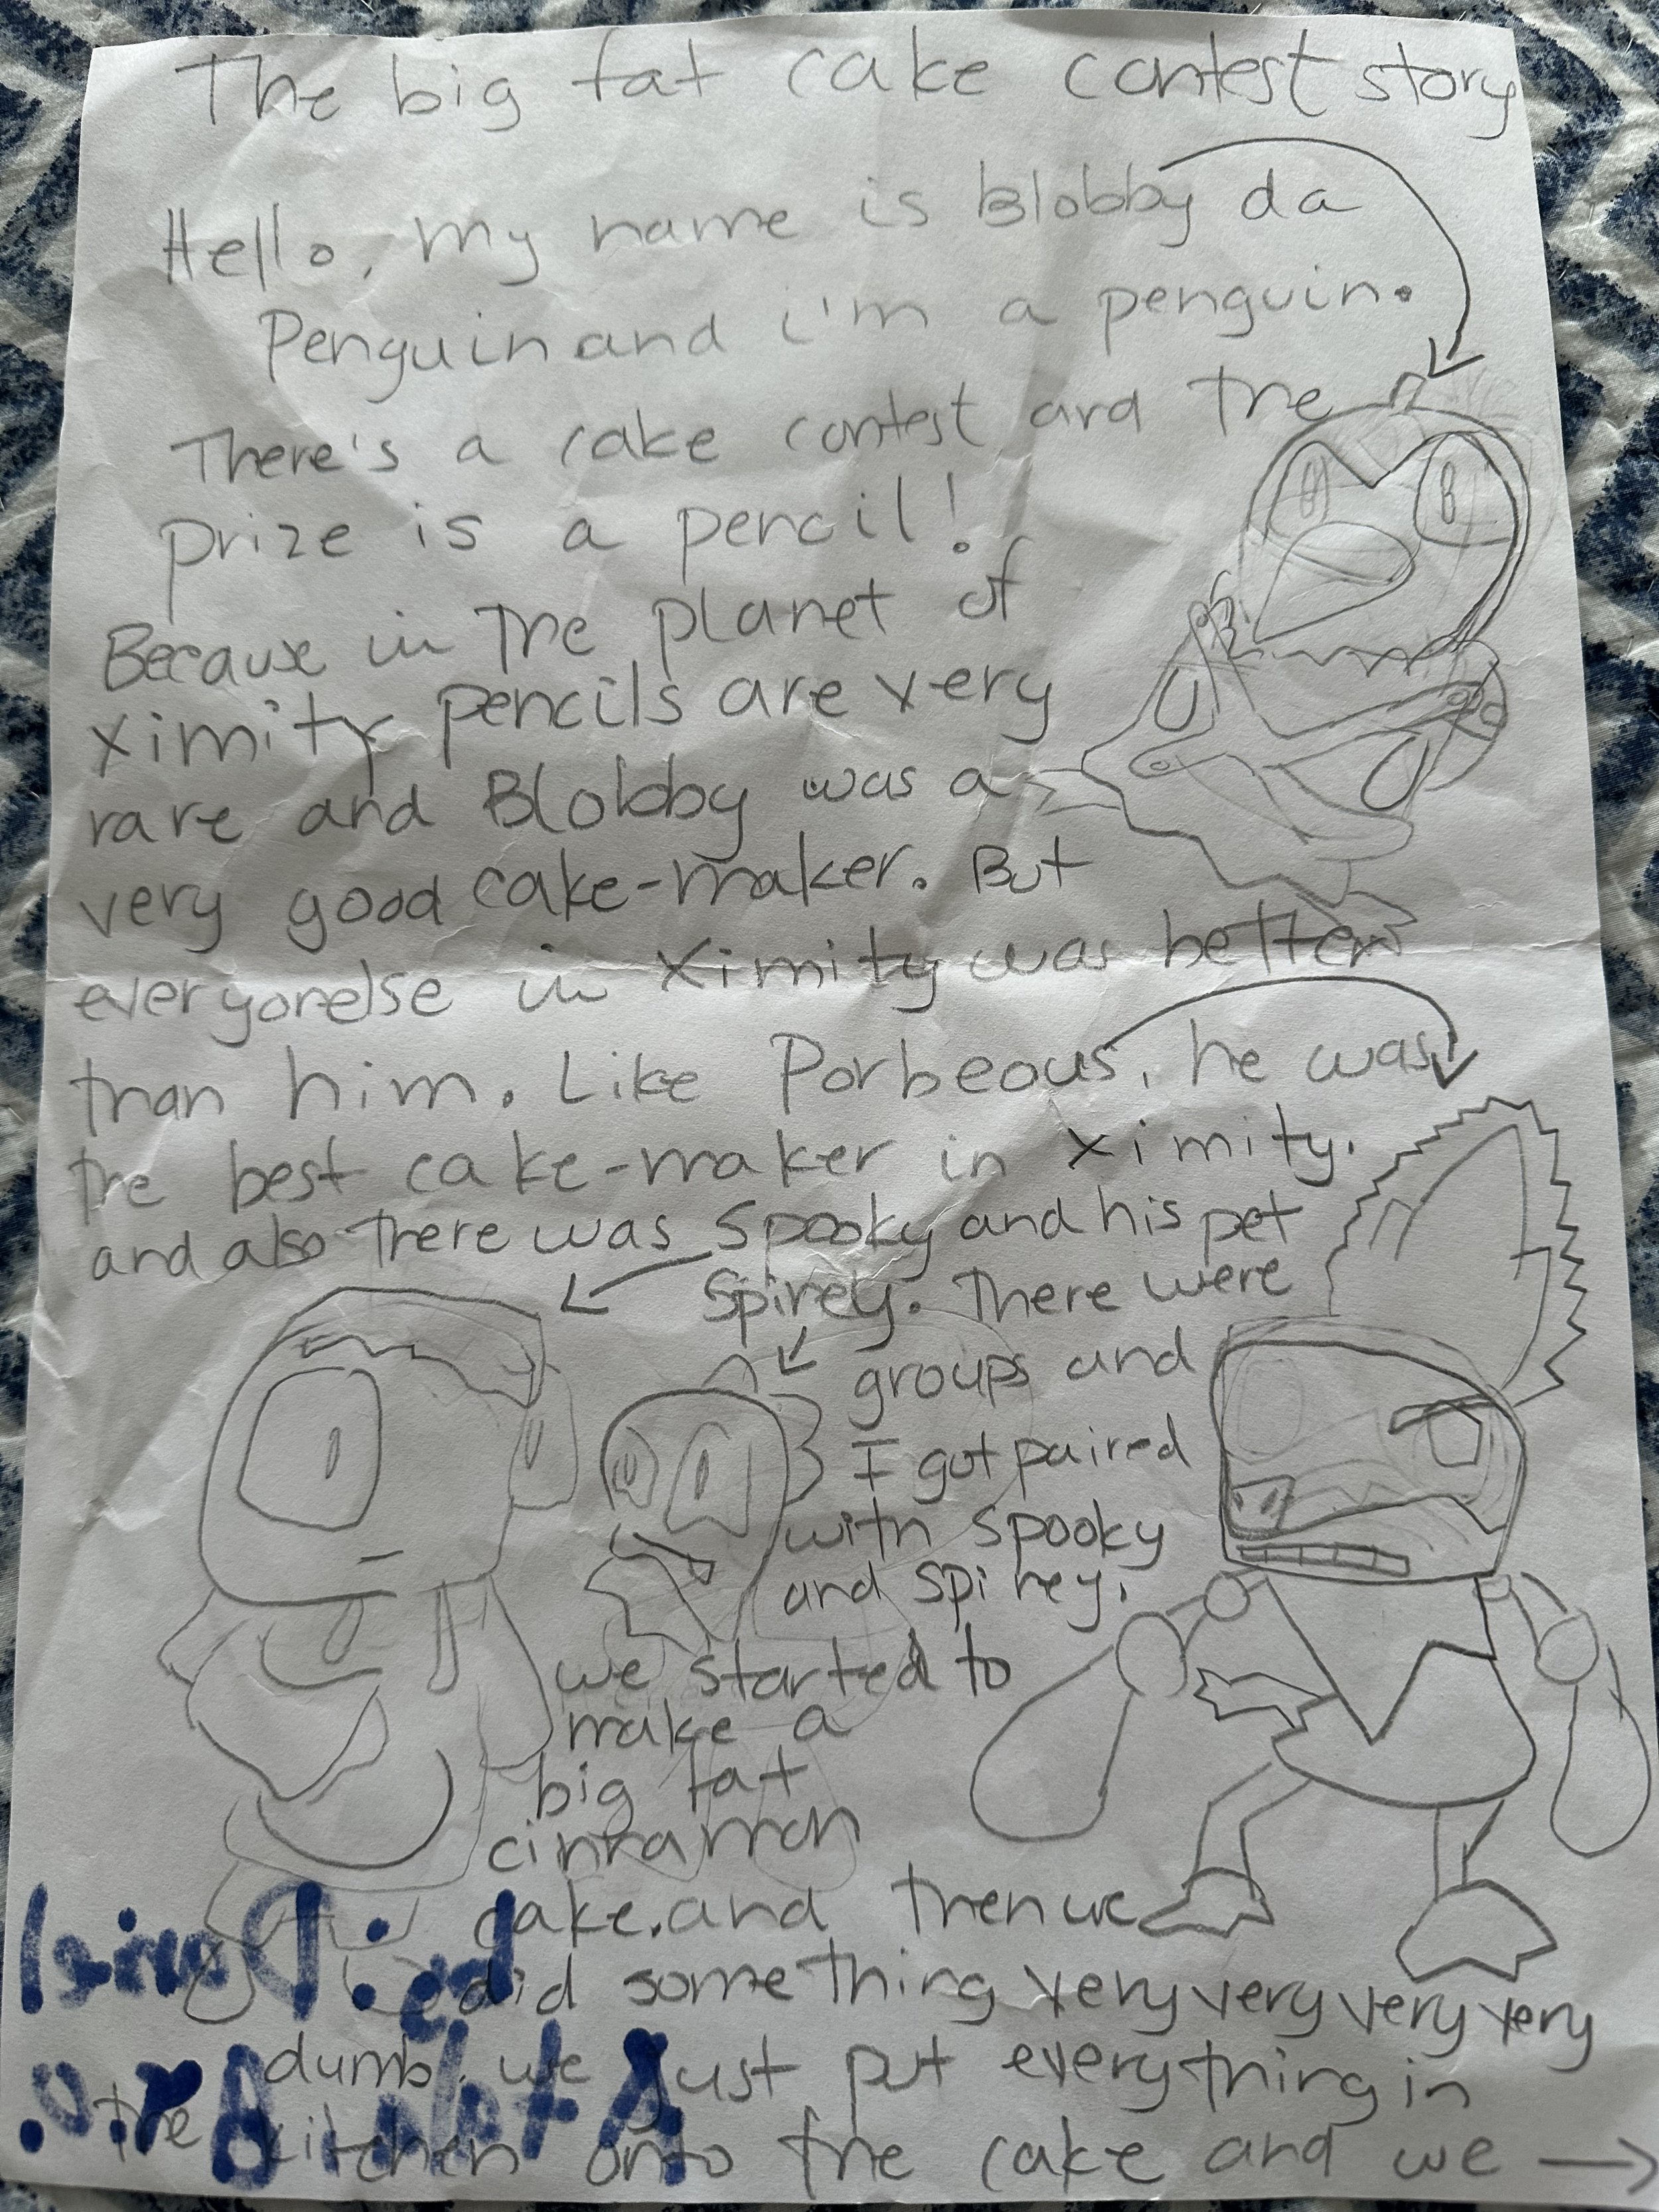 The big fat cake contest story
Hello, my name is Blobby da
Penguin and i'm a penguin.
There's a cake contest and the
prize is a pencil!
Because in the planet of
Ximity pencils are very
rare and Blobby was a
very good cake-maker. But
everyonelse in Ximity was better
than him. Like Porbeous, he was
the best cake-maker in Ximity.
and also there was Spooky and his pet
Spiney. There were
groups and
I got paired
with spooky
and spiney.
we started to
make a
big fat
cinnamon
cake.and then we
did something very very very very
dumb. we just put everything in
the kitchen onto the cake and we →